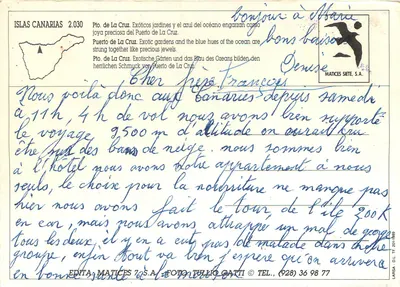 ISLAS CANARIAS 2.030
Pto. de La Cruz. Exóticos jardines y el azul del océano engarzan como
joya preciosa del Puerto de La Cruz.
Puerto de La Cruz. Exotic gardens and the blue hues of the ocean are
strung together like precious jewels.
Pto. de La Cruz. Exotische Gärten und das Blau des Ozeans bilden den
herrlichen Schmuck von Puerto de La Cruz.
bonjour à Marie
bons baisers
Denise
MATICES SIETE, S.A.
Cher père François
Nous voilà donc aux Canaries depuis samedi
à 11h, 4h de vol nous avons bien supporté
le voyage 9500 m d'altitude on aurait pu
être sur des bancs de neige. nous sommes bien
à l'hôtel nous avons notre appartement à nous
seuls, le choix pour la nourriture ne manque pas
hier nous avons fait le tour de l'île 200K
en car, mais nous avons attrappé un mal de gorge
tous les deux, il y en a cuts pas de malade dans notre
groupe, enfin tout va bien j'espère qu'on arrivera
en bonne santé à la maison
EDITA: MATICES 7, S.A. FOTO: JULIO GATTI © TEL., (928) 36 98 77